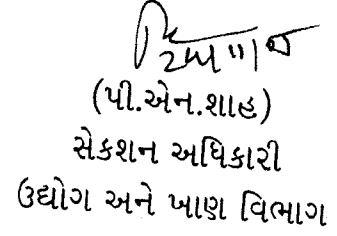 (પી.એન.શાહ)
સેકશન અધિકારી
ઉદ્યોગ અને ખાણ વિભાગ